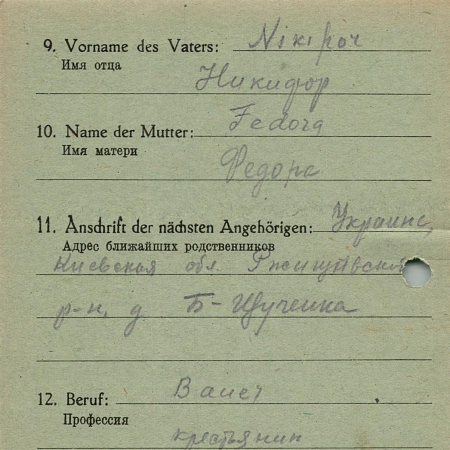 9. Vorname des Vaters: Nikifor
Имя отца
Никифор
10. Name der Mutter: Fedora
Имя матери
Федора
11. Anschrift der nächsten Angehörigen: Украина,
Адрес ближайших родственников
Киевская обл. Ржищевский
р-н, д. Б-Щученка
12. Beruf: Bauer
Профессия
крестьянин